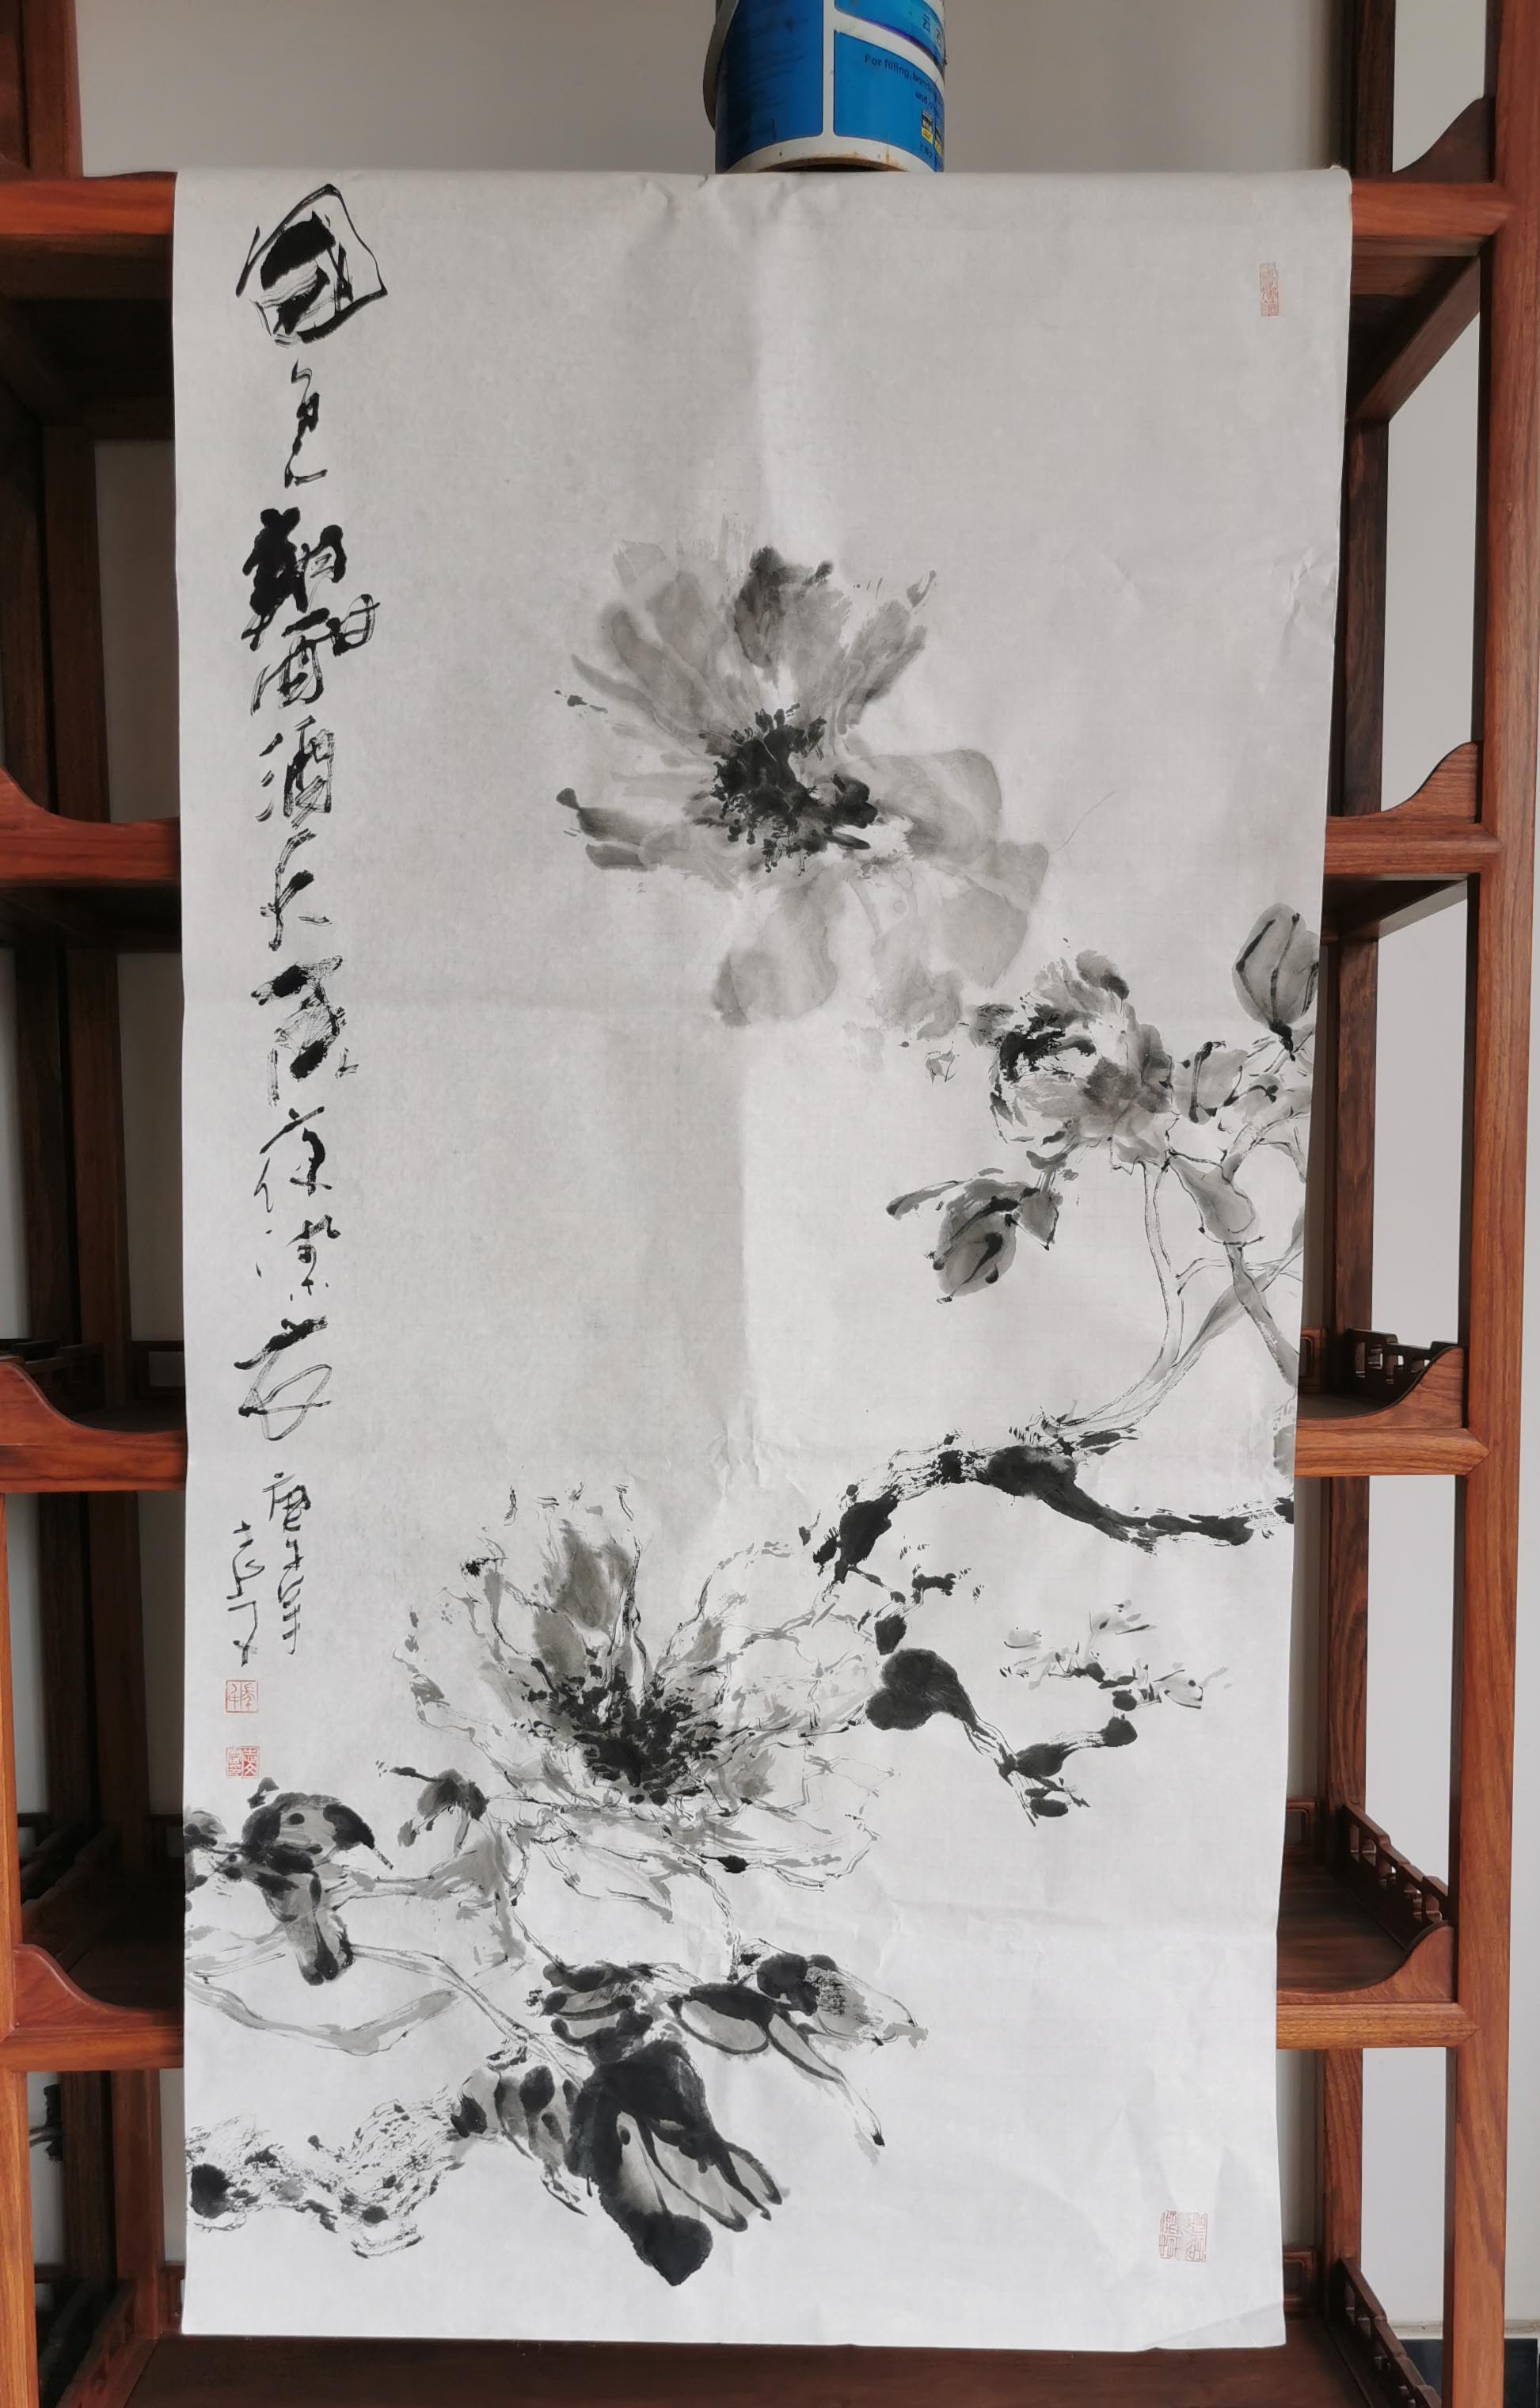 For filling,
and
國色朝酣酒天香夜染衣
庚子年
志文